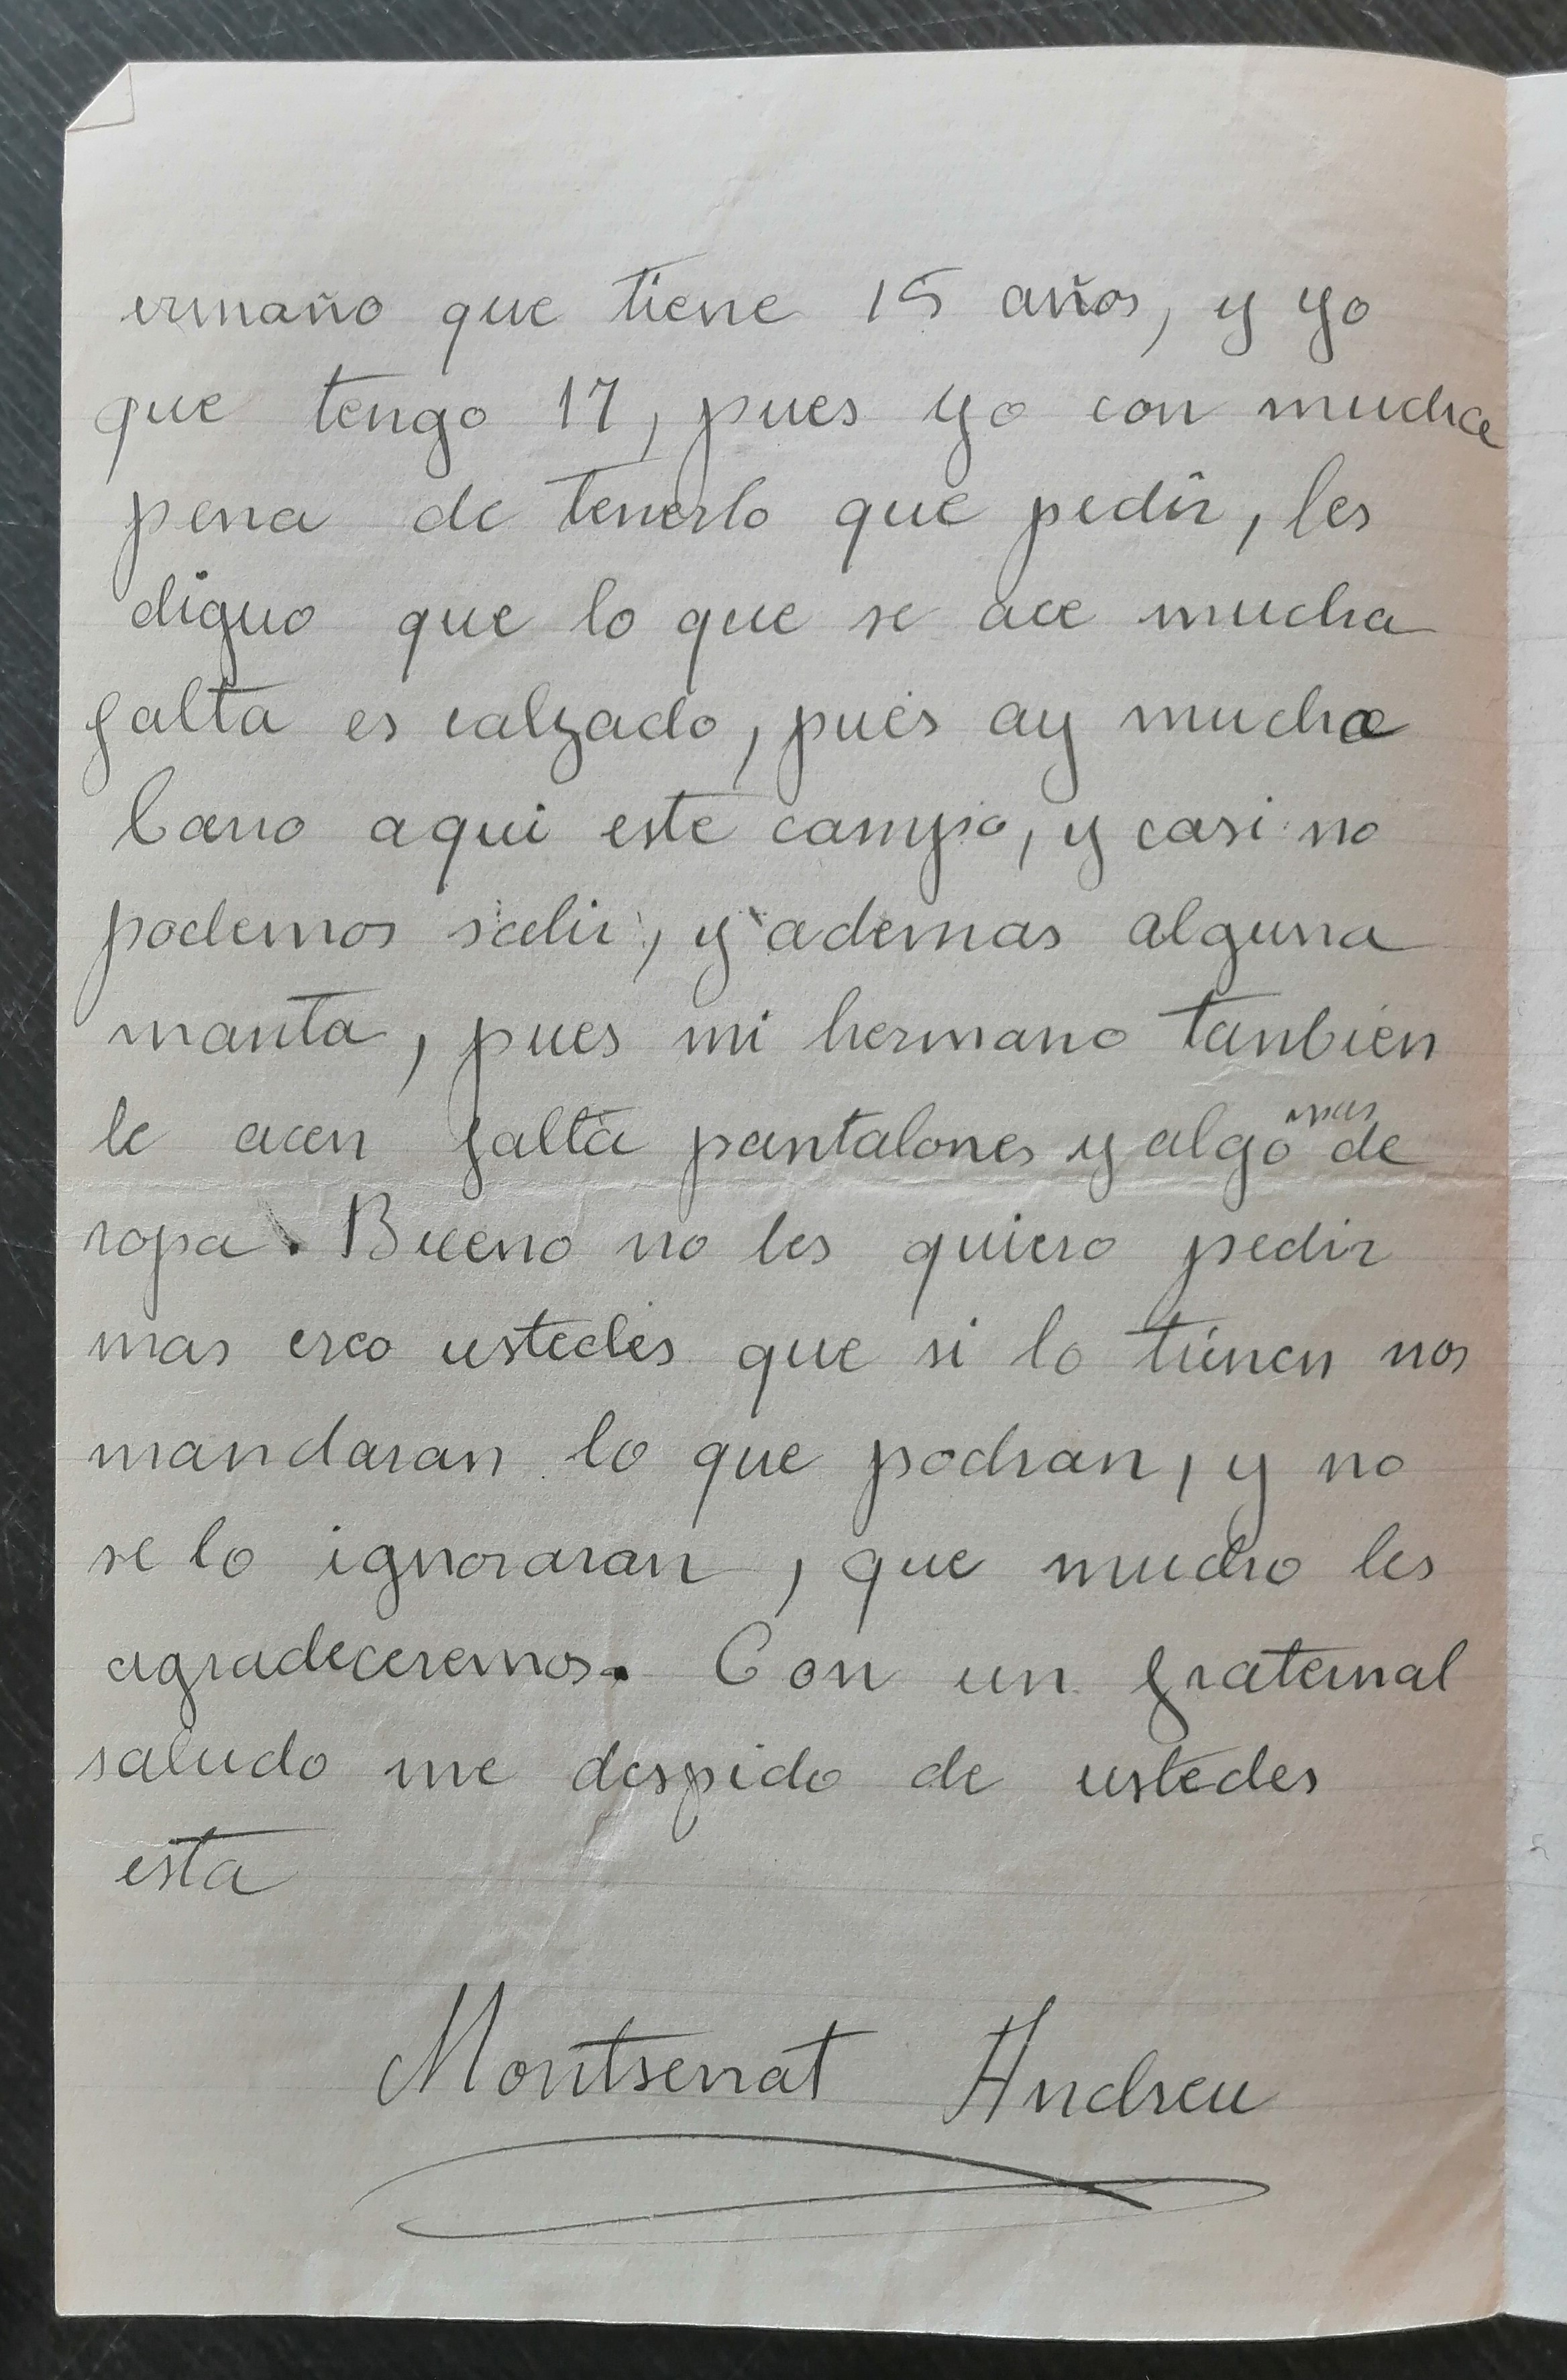 ermaño que tiene 15 años, y yo
que tengo 17, pues yo con mucha
pena de tenerlo que pedir, les
diguo que lo que se ace mucha
falta es calzado, pues ay mucha
barro aqui este campo, y casi no
podemos salir, y ademas alguna
manta, pues mi hermano tanbien
le acen falta pantalones y algo mas de
ropa. Bueno no les quiero pedir
mas creo ustedes que si lo tienen nos
mandaran lo que podran, y no
se lo ignoraran, que mucho les
agradeceremos. Con un fraternal
saludo me despido de ustedes
esta
Montserrat Andreu